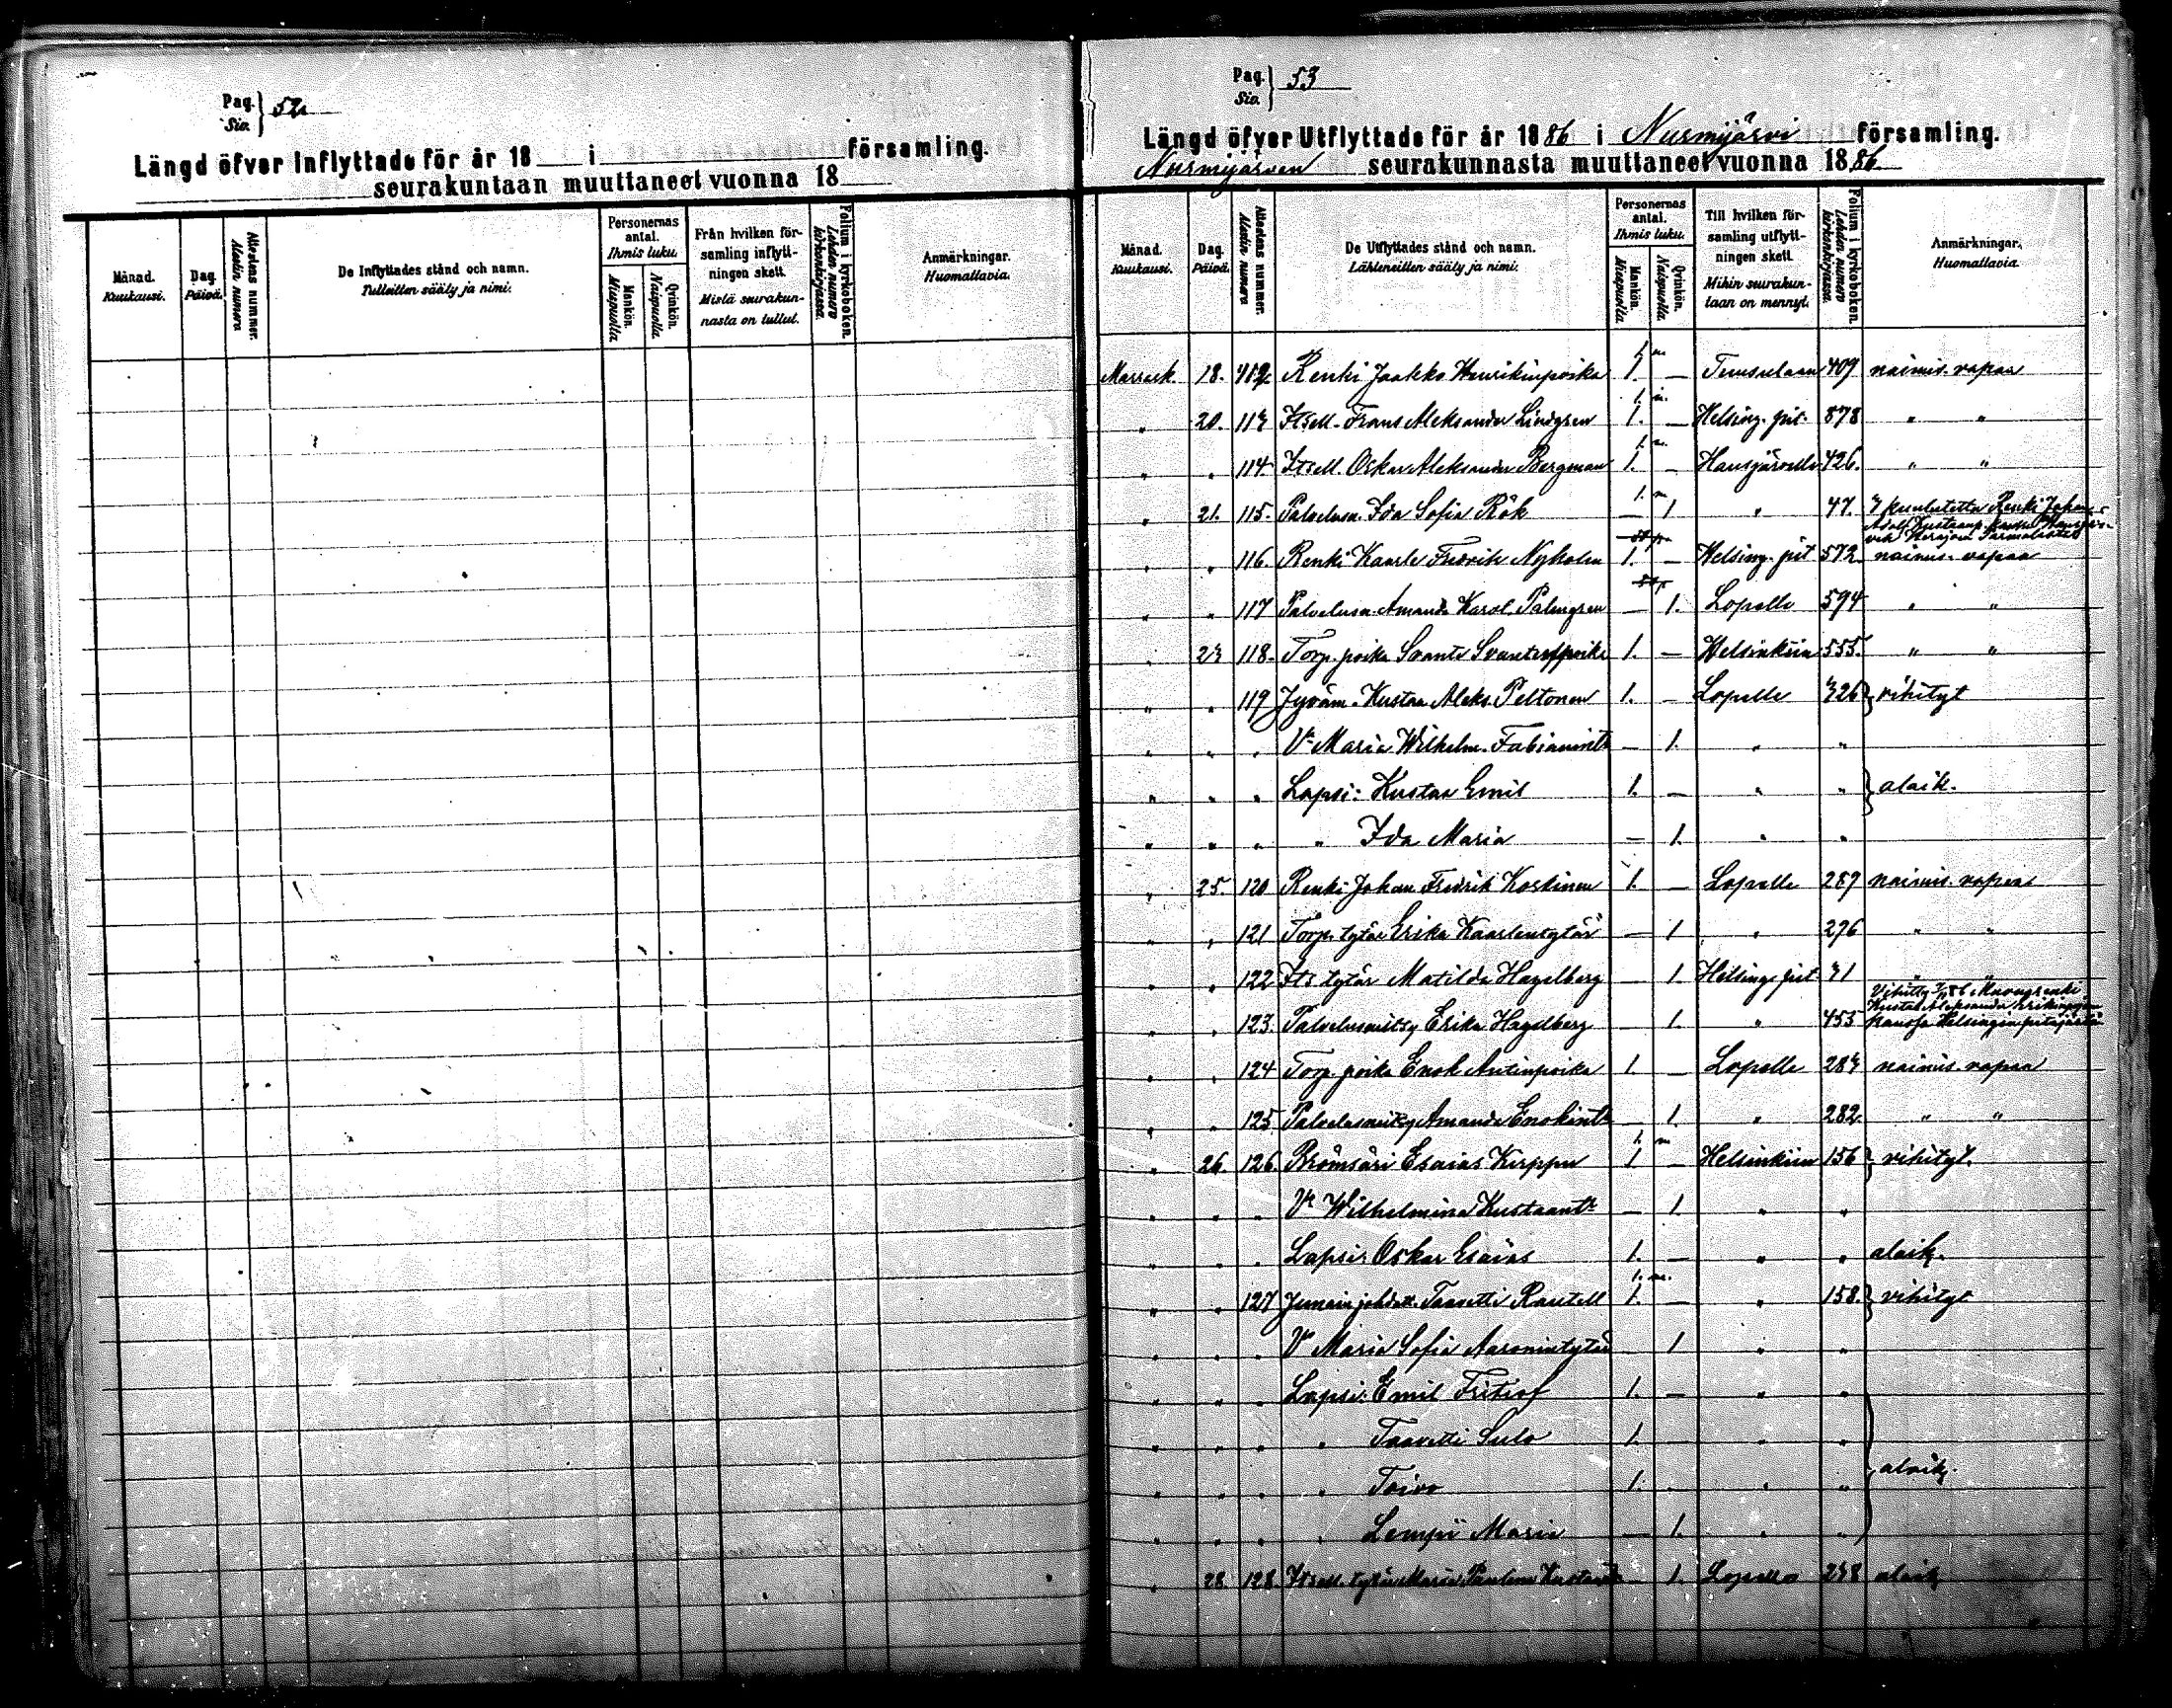 Pag. Siv. } 52
Längd öfver Inflyttade för år 18 i församling.
seurakuntaan muuttaneet vuonna 18
Månad. Kuukausi.
Dag. Päivä.
Attestens nummer. Alestin numero
De Inflyttades stånd och namn. Tulleitten sääly ja nimi.
Personernas antal. Ihmis luku.
Mankön. Miespuolia
Qvinkön. Naispuolia
Från hvilken församling inflyttningen skett. Mistä seurakunnasta on tullut.
Folium i kyrkoboken. Lehden numero kirkonkirjassa.
Anmärkningar. Huomattavia.
Pag. Siv. } 53
Längd öfver Utflyttade för år 1886 i Nurmijärvi församling.
Nurmijärven seurakunnasta muuttaneet vuonna 1886
Månad. Kuukausi.
Dag. Päivä.
Attestens nummer. Alestin numero
De Utflyttades stånd och namn. Lähteneitten sääly ja nimi.
Personernas antal. Ihmis luku.
Mankön. Miespuolia
Qvinkön. Naispuolia.
Till hvilken församling utflyttningen skett. Mihin seurakuntaan on mennyt.
Folium i kyrkoboken. Lehden numero kirkonkirjassa.
Anmärkningar. Huomattavia.
Marrask. 18. 112 Renki Jaakko Henrikinpoika 1. — Tuusulaan 409 naimis. vapaa
" 20. 113 Itsell. Frans Aleksander Lindgren 1. — Helsing. pit. 878 " "
" " 114 Itsell. Oskar Aleksander Bergman 1. — Hausjärvelle 426. " "
" 21. 115. Palvelusn. Ida Sofia Rök — 1 " 47. 3 kuulutettu Renki Johan Adolf Kustaanp. kanssa
" " 116. Renki Kaarle Fredrik Nyholm 1. — Helsing. pit 572 naimis. vapaa
" " 117 Palvelusn. Amanda Karol. Palmgren — 1. Lopelle 594 " "
" 23 118. Torp. poika Svante Svantenpoika 1. — Helsinkiin 555. " "
" " 119 Jyväm. Kustaa Aleks. Peltonen 1. — Lopelle 326 } vihityt
" " " Vo Maria Wilhelm. Fabianint. — 1. " "
" " " Lapsi: Kustaa Emil 1. — " " } alaik.
" " " " Ida Maria — 1. " "
" 25. 120 Renki Johan Fredrik Koskinen 1. — Lopelle 289 naimis. vapaa
" " 121 Torp. tytär Erika Kaarlentytär — 1 " 296 " "
" " 122 Its tytär Matilda Hagelberg — 1. Helsing. pit 31 " "
" " 123. Palvelusneitsy Erika Hagelberg — 1. " 453 Vihitty 86 Kustaa Aleksander kanssa Helsinginpitäjästä
" " 124 Torp. poika Enok Antinpoika 1. — Lopelle 283 naimis. vapaa
" " 125. Palvelusneitsy Amanda Enokint. — 1. " 282 " "
" 26. 126. Brömsäri Esaias Kirppu 1. — Helsinkiin 156 } vihityt.
" " " Vo Wilhelmina Kustaant. — 1. " "
" " " Lapsi: Oskar Esaias 1. — " " alaik.
" " 127 Junain johdatt. Taavetti Rautell 1. — " 158. } vihityt
" " " Vo Maria Sofia Aaronintytär 1 " "
" " " Lapsi: Emil Fritiof 1. — " "
" " " " Taavetti Sulo 1. — " "
" " " " Toivo 1. " " } alaik.
" " " " Lempi Maria — 1. " "
" 28 128. Itsell. tytär Maria Paulina — 1. Lopelle 248 alaik